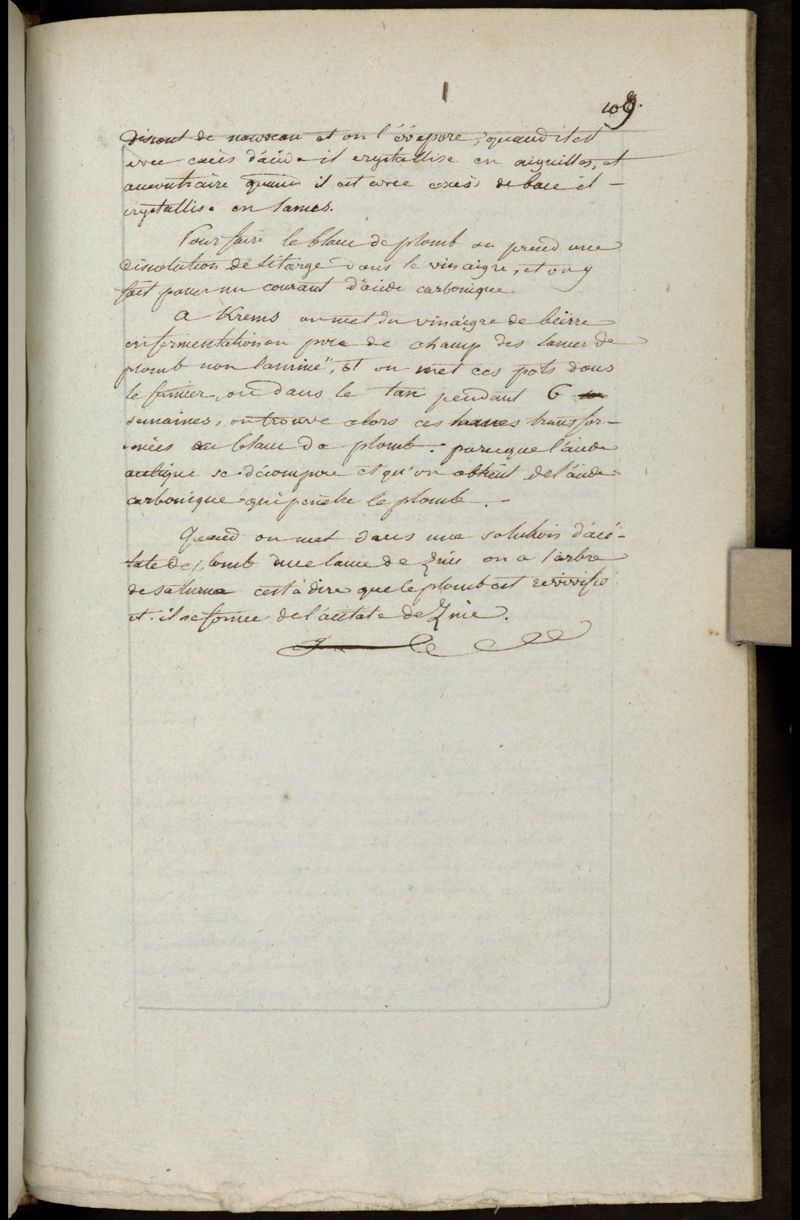 109.
dissout de nouveau et on l'évapore, quand il est
avec excès d'acide il crystallise en aiguilles, et
au contraire quand il est avec excès de base il
crystallise en lames.
Pour faire le blanc de plomb on prend une
dissolution de litarge dans le vinaigre, et on y
fait passer un courant d'acide carbonique.
A Krems on met du vinaigre de bierre
en fermentation on pose de champ des lames de
plomb non laminé, et on met ces pots dans
le fumier, ou dans le tan pendant 6
semaines, on trouve alors ces lames transfor-
mées en blanc de plomb: parceque l'acide
acétique se décompose et qu'on obtient de l'acide
carbonique qui penètre le plomb.
Quand on met dans une solution d'acé-
tate de plomb une lame de Zinc on a l'arbre
de saturne c'est à dire que le plomb est revivifié
et il se forme de l'acétate de Zinc.